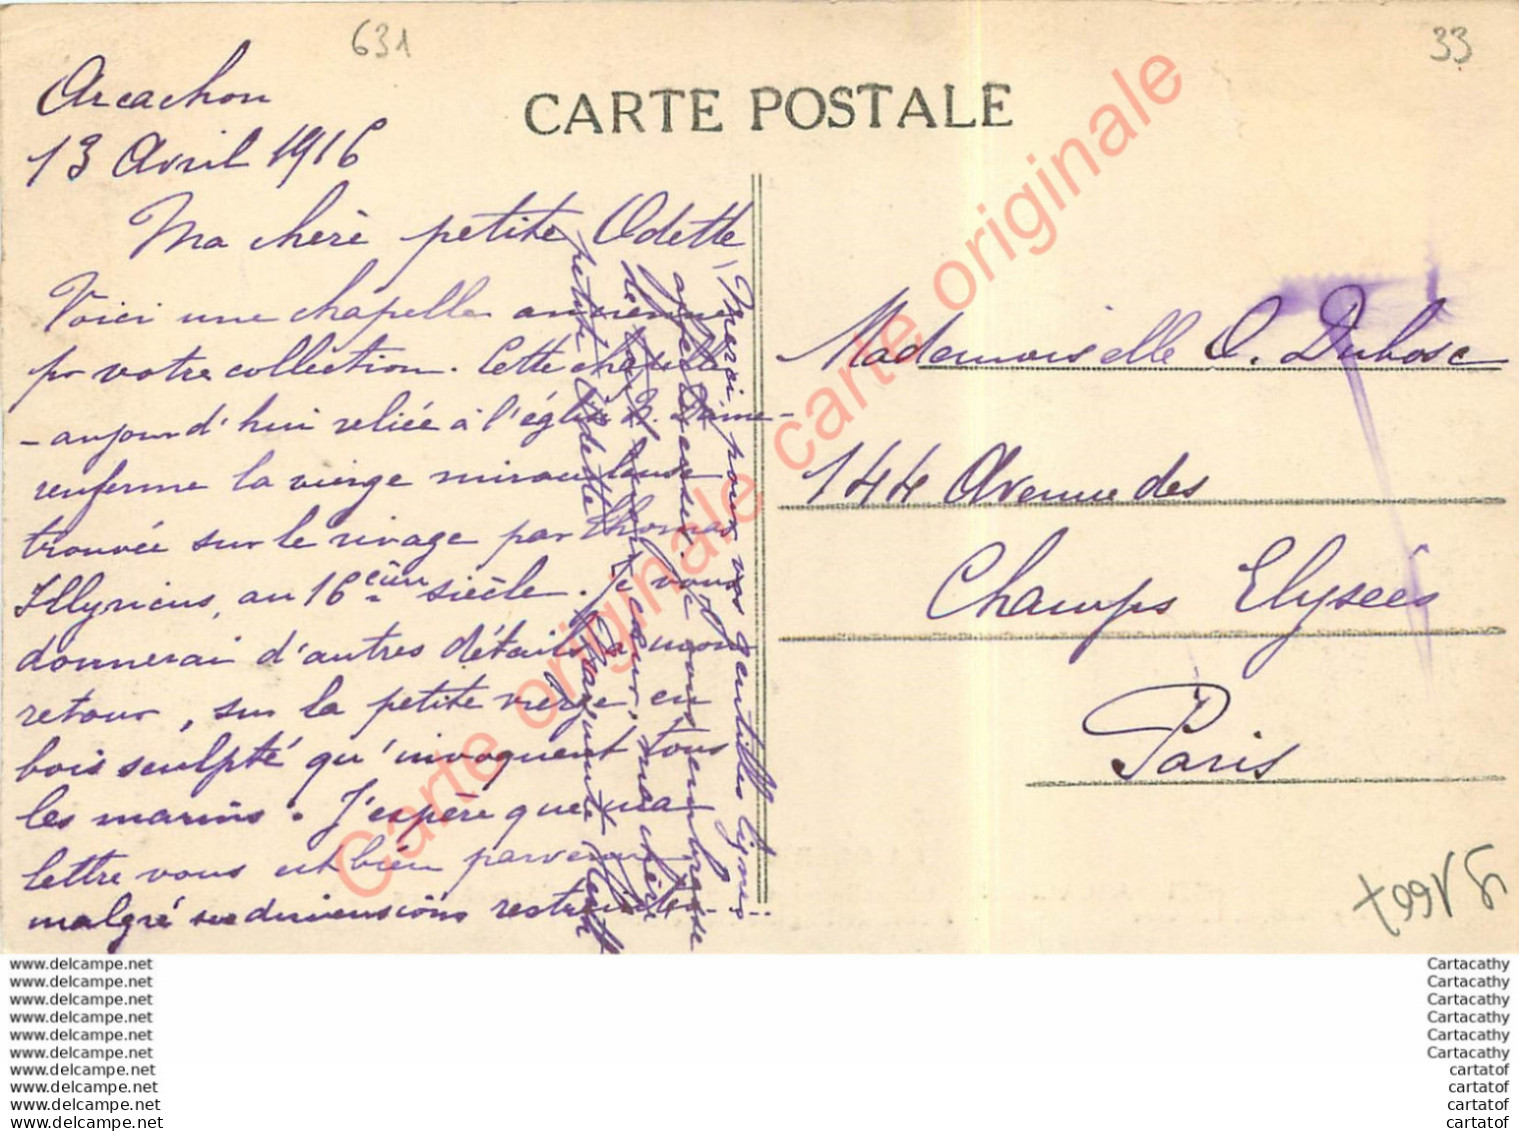 631
33
CARTE POSTALE
Arcachon
13 Avril 1916
Ma chère petite Odette,
Voici une chapelle ancienne
pr votre collection. Cette chapelle
- aujourd'hui reliée à l'église N. Dame -
renferme la vierge miraculeuse
trouvée sur le rivage par Thomas
Illyricus, au 16ème siècle. Je vous
donnerai d'autres détails, à mon
retour, sur la petite vierge en
bois sculpté qu'invoquent tous
les marins. J'espère que ma
lettre vous est bien parvenue
malgré ses dimensions restreintes.
Merci pour vos gentilles lignes
affectueuses. Je vous embrasse
de tout cœur, ma chère
petite Odette
Mademoiselle O. Dubosc
144 Avenue des
Champs Elysées
Paris
Carte originale carte originale carte originale
www.delcampe.net
www.delcampe.net
www.delcampe.net
www.delcampe.net
www.delcampe.net
www.delcampe.net
www.delcampe.net
www.delcampe.net
www.delcampe.net
www.delcampe.net
Cartacathy
Cartacathy
Cartacathy
Cartacathy
Cartacathy
Cartacathy
cartatof
cartatof
cartatof
cartatof